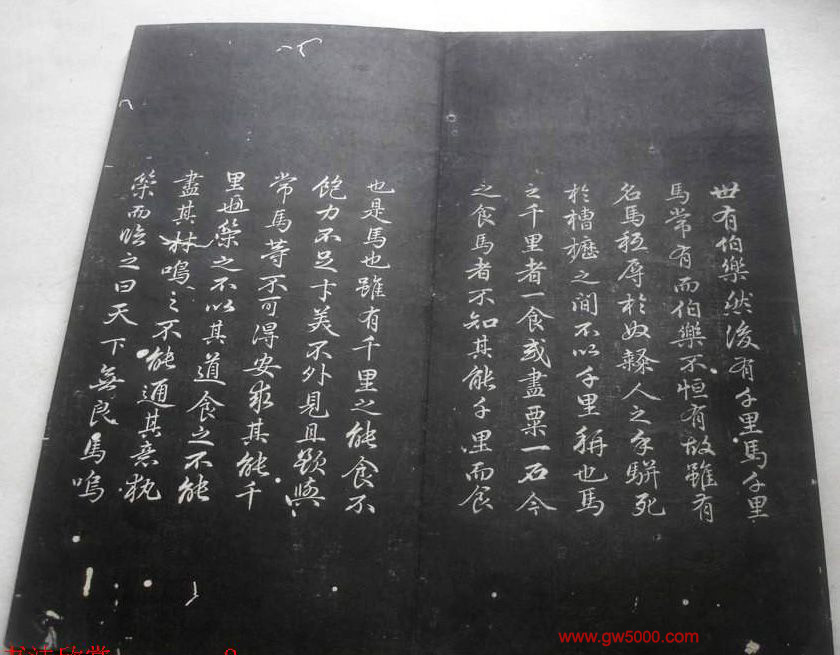 世有伯樂然後有千里馬千里
馬常有而伯樂不恒有故雖有
名馬秪辱於奴隸人之手駢死
於槽櫪之間不以千里稱也馬
之千里者一食或盡粟一石今
之食馬者不知其能千里而食
也是馬也雖有千里之能食不
飽力不足才美不外見且欲與
常馬等不可得安求其能千
里也策之不以其道食之不能
盡其材鳴之不能通其意執
策而臨之曰天下無良馬嗚
www.gw5000.com
书法欣赏